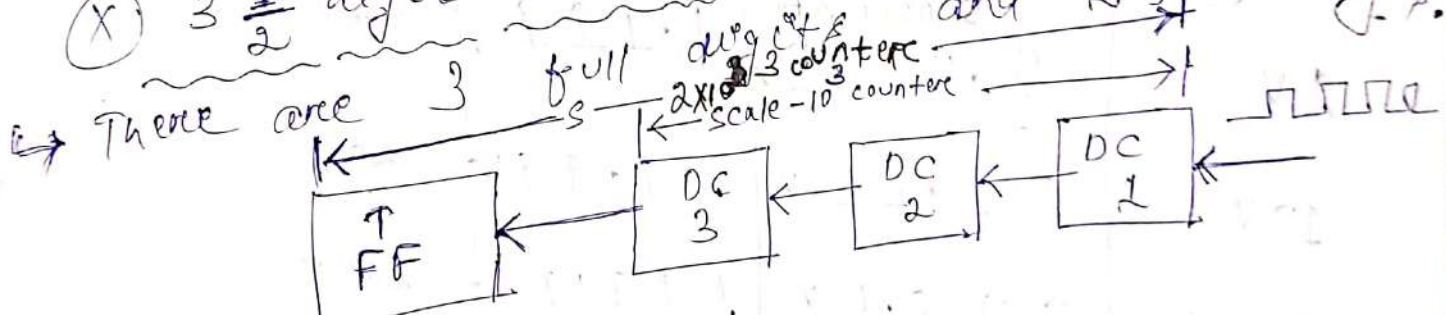 (X) 3 1/2 and
↳ There are 3 full digits
S 2×10³ counter
scale-10³ counter
FF DC 3 DC 2 DC 1